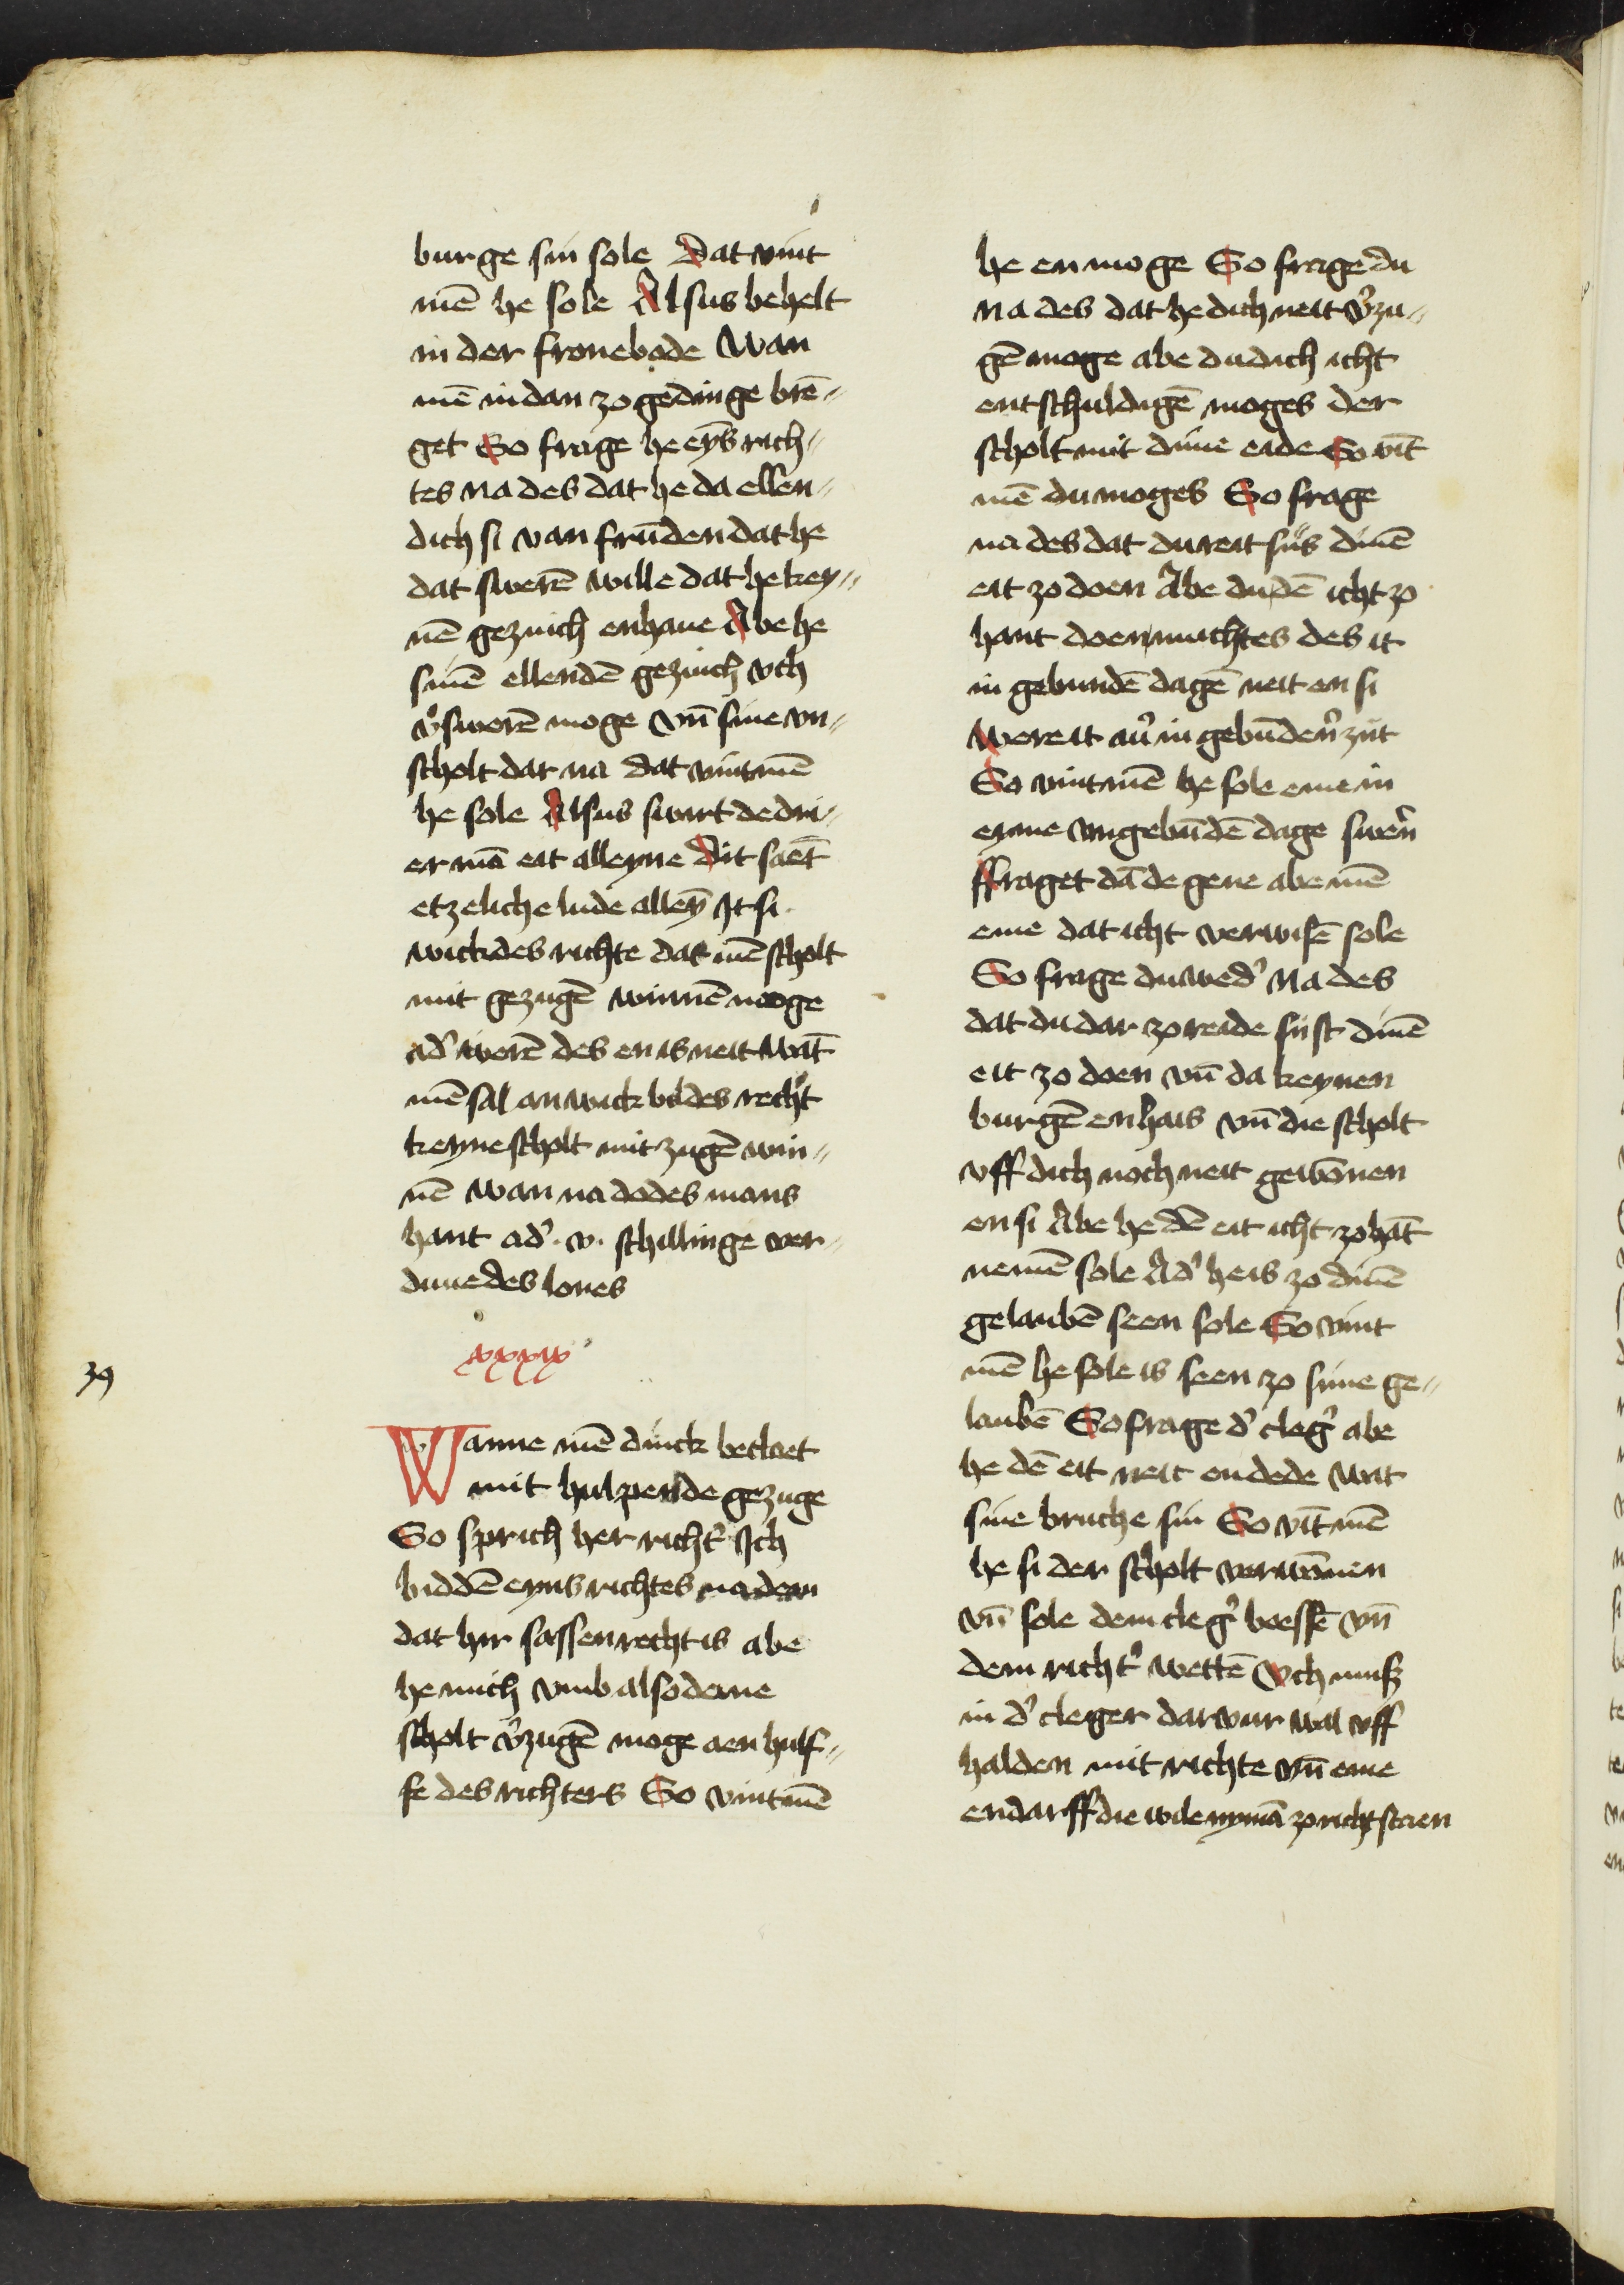 burge sin sole Dat vint
mē he sole Alsus behelt
in der fronebode Wan
mē in dan zo gedinge brē„
get So frage he eȳs rich„
tes na des dat he da ellen„
dich si van frūden dat he
dat swerē wille dat he key„
nē gezuich enhaue Abe he
sinē ellendē gezuich vch
v̓swerē moge vn̄ sine vn„
scholt dar na dat vint mē
he sole Alsus swirt de dri„
er mā eit alleyne Dit saēt
etzeliche lude alleȳ It si
wickdes richte dat mē scholt
mit gezugē winnē moge
ad̓ werē des en is neit Wāt
mē sal an wickbeldes recht
keyne scholt mit zugē win„
nē wan na dodes mans
hant ad̓ .v. schillinge ver„
dinedes lones
xxxix
39
Wanne mē dinck beclaet
mit hulpende gezuge
So sprich her richt̓ Ich
biddē eyns richtes na dem
dat hir sassenrecht is abe
he mich vmb alsodeme
scholt v̓zugē moge aen hulf„
fe des richters So vint mē
he en moge So frage du
na des dat he dich neit v̓zu„
gē moge abe du dich icht
entschuldigē moges der
scholt mit dime eide So vīt
mē du moges So frage
na des dat du reit sijs dinē
eit zo doen Abe du dē icht zo
hant doen muchtes des it
in gebundē dagē neit en si
Were it au̓ in gebūden̓ zijt
So vint mē he sole eme in
eyme vngebūdē dage swen̓
ffraget dā de gene abe mē
eme dat icht verwisē sole
So frage du wed̓ na des
dat du dar zo reide sijst dinē
eit zo doen vn̄ da keynen
burgē en hais vn̄ die scholt
vff dich noch neit gewōnen
en si Abe he dē eit icht zo hāt
nemē sole Ad̓ he is zo dinē
gelaubē seen sole So vint
mē he sole is seen zo sime ge„
laubē So frage d̓ cleg̓ abe
he dē eit neit en dede wat
sine bruche sin So vīt mē
he si der scholt verwōnen
vn̄ sole dem cleg̓ boessē vn̄
dem richt̓ wettē Vch muß
in d̓ cleger dar vur wal vff
halden mit richte vn̄ eme
endarff die wile nymā zo richt staen